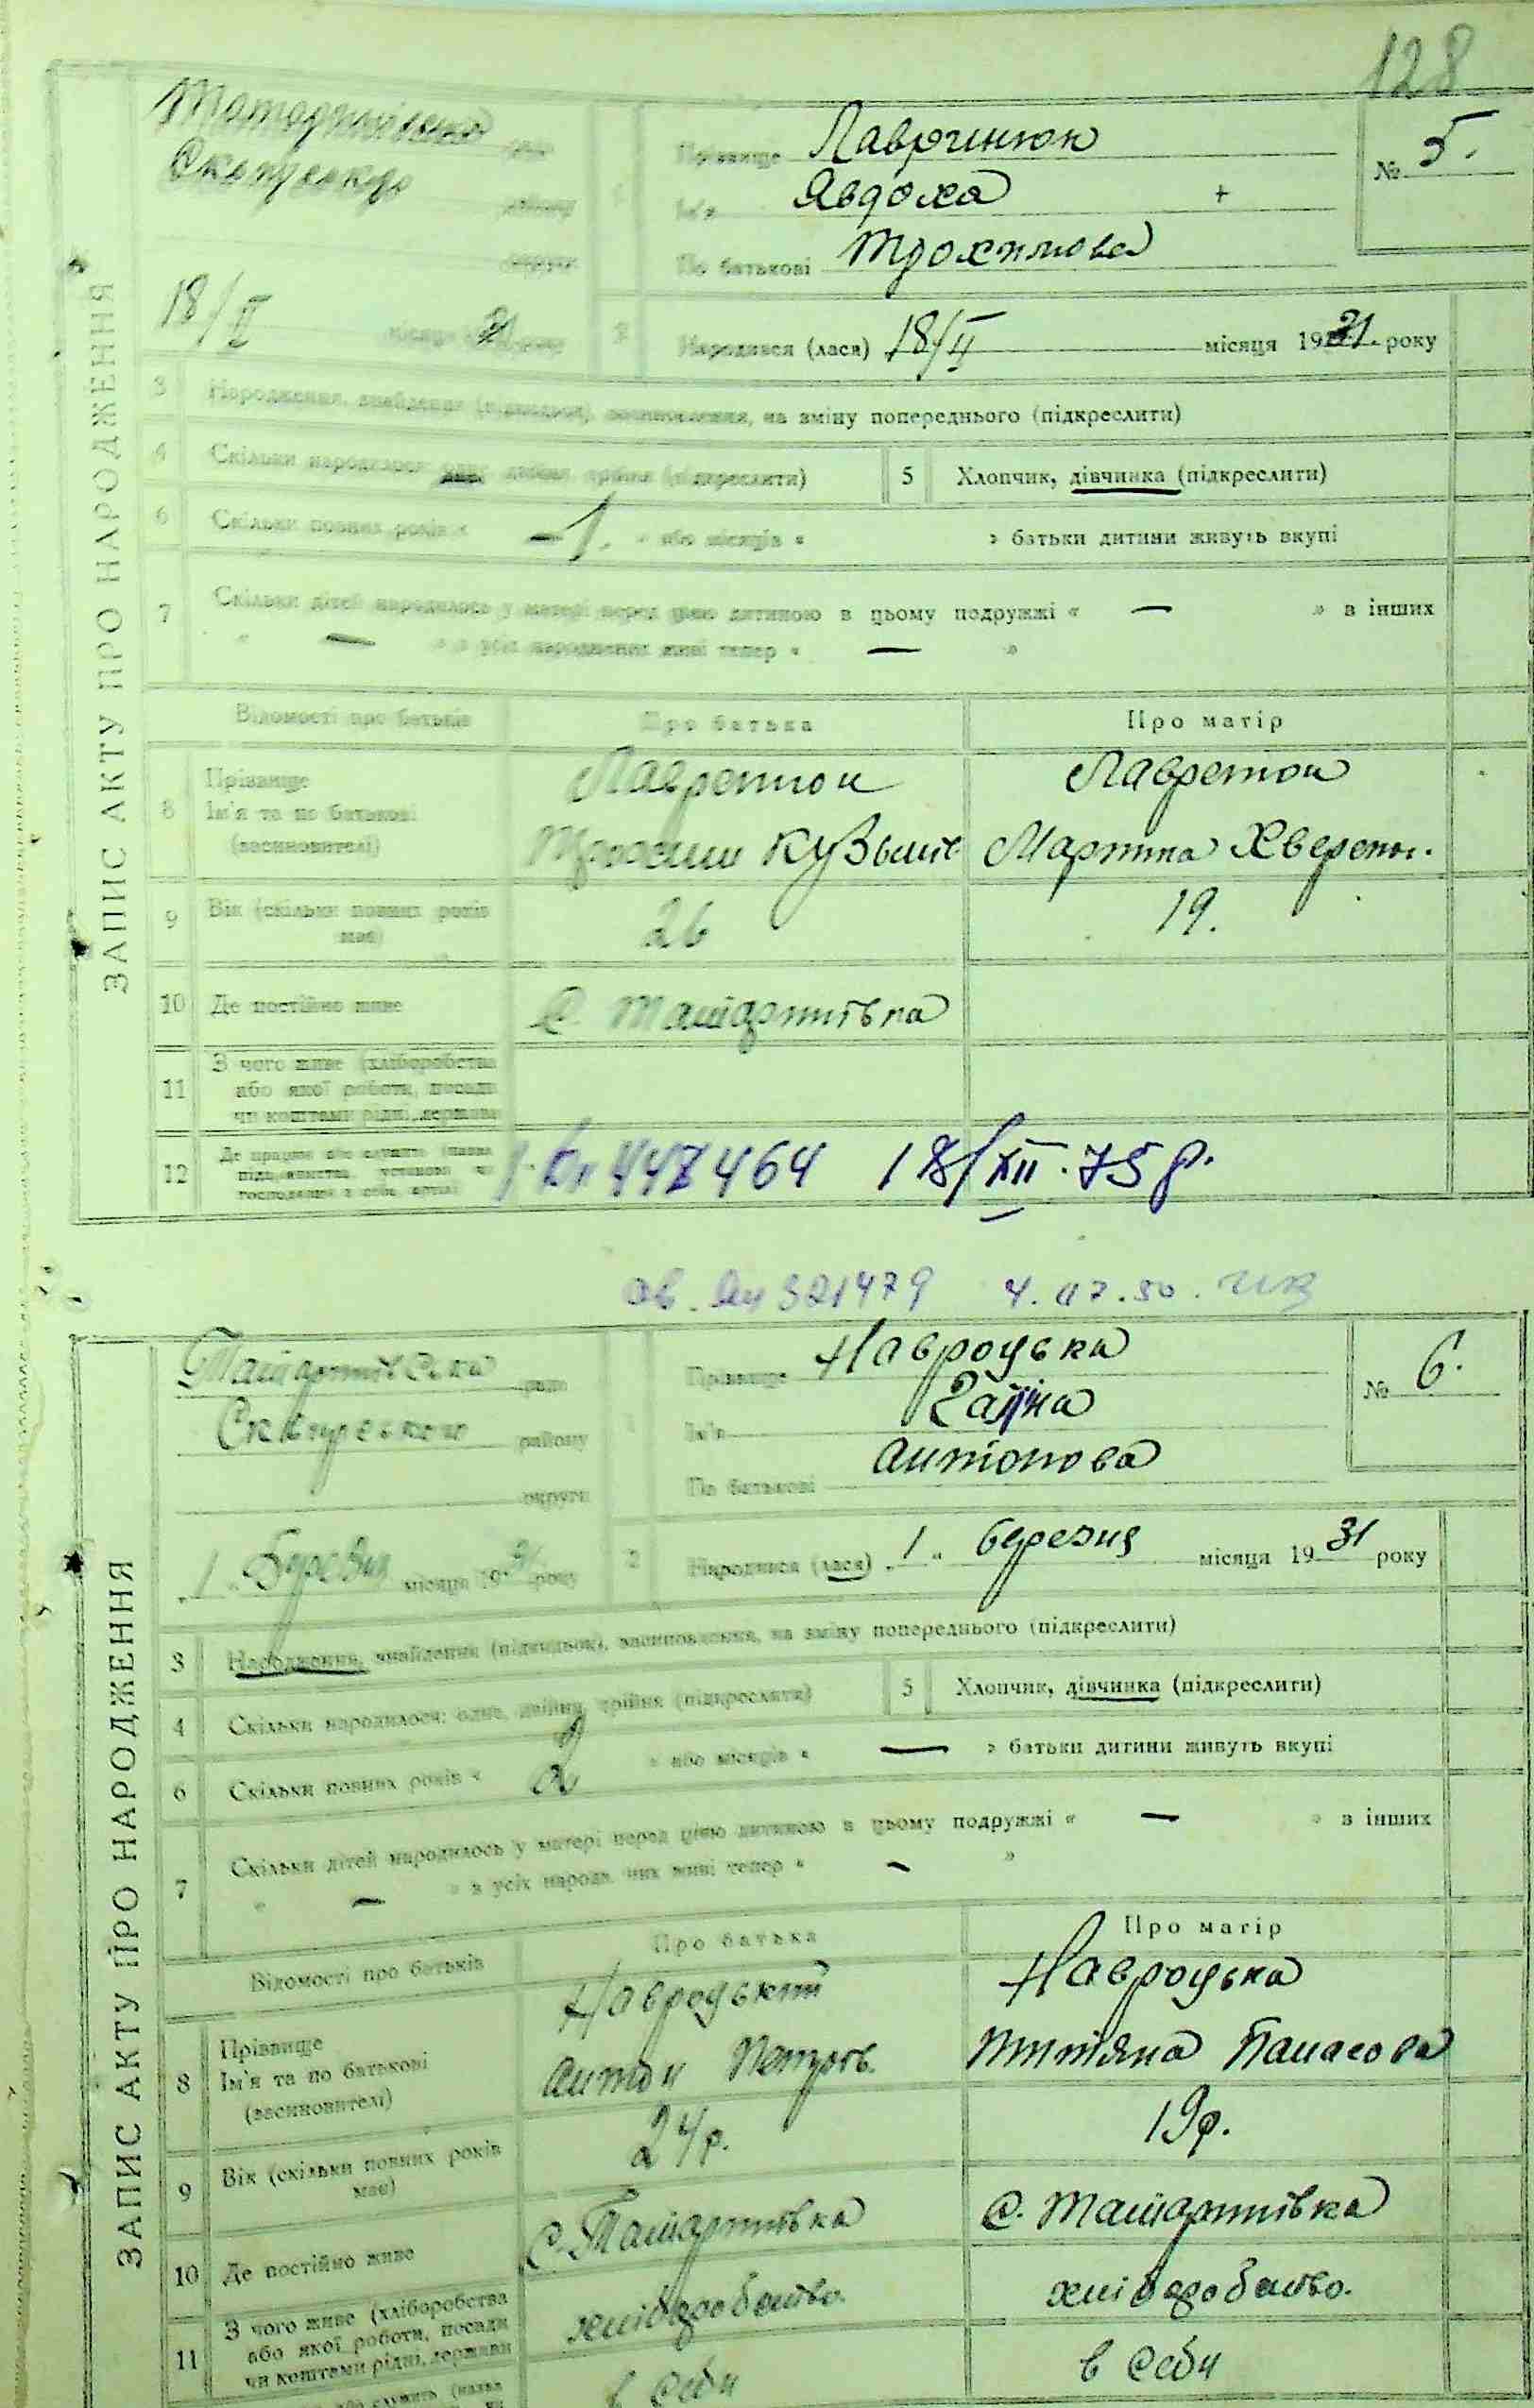 128
ЗАПИС АКТУ ПРО НАРОДЖЕННЯ
18/II місяця 31
1 Прізвище Лавринюк
Ім'я Явдоха +
По батькові Трохимова
№ 5.
2 Народився (лася) 18/II місяця 1931 року
3 Народження, знайдення (підкидьок), всиновлення, на зміну попереднього (підкреслити)
4 Скільки народилося: одне, двійня, трійня (підкреслити)
5 Хлопчик, дівчинка (підкреслити)
6 Скільки повних років « 1. » або місяців « » батьки дитини живуть вкупі
7 Скільки дітей народилось у матері перед цією дитиною в цьому подружжі « — » в інших
« — » з усіх народжених живі тепер « — »
Відомості про батьків Про батька Про матір
8 Прізвище
Ім'я та по батькові
(всиновителі)
Трохим Кузьмів
9 Вік (скільки повних років має) 26 19.
10 Де постійно живе С. Ташарлиївка
11 З чого живе (хліборобства
або якої роботи, посади
чи коштами рідні, держави
12
447464 18/XII.75р.
321479
ЗАПИС АКТУ ПРО НАРОДЖЕННЯ
Сквирського району
округи
„1„ Березня місяця 1931 року
1 Прізвище Навроцька
Ім'я Галина
По батькові Антонова
№ 6.
2 Народився (лася) „1„ березня місяця 1931 року
3 Народження, знайдення (підкидьок), всиновлення, на зміну попереднього (підкреслити)
4 Скільки народилося: одне, двійня, трійня (підкреслити)
5 Хлопчик, дівчинка (підкреслити)
6 Скільки повних років « 2 » або місяців « — » батьки дитини живуть вкупі
7 Скільки дітей народилось у матері перед цією дитиною в цьому подружжі « — » в інших
« — » з усіх народж. них живі тепер « - »
Відомості про батьків Про батька Про матір
8 Прізвище
Ім'я та по батькові
(всиновителі)
Навроцький Навроцька
Антон Петров. Панасова
9 Вік (скільки повних років має) 24р. 19р.
10 Де постійно живе С. Ташарлиївка С. Ташарлиївка
11 З чого живе (хліборобства
або якої роботи, посади
чи коштами рідні, держави
хліборобство. хліборобство.
в себи в себи